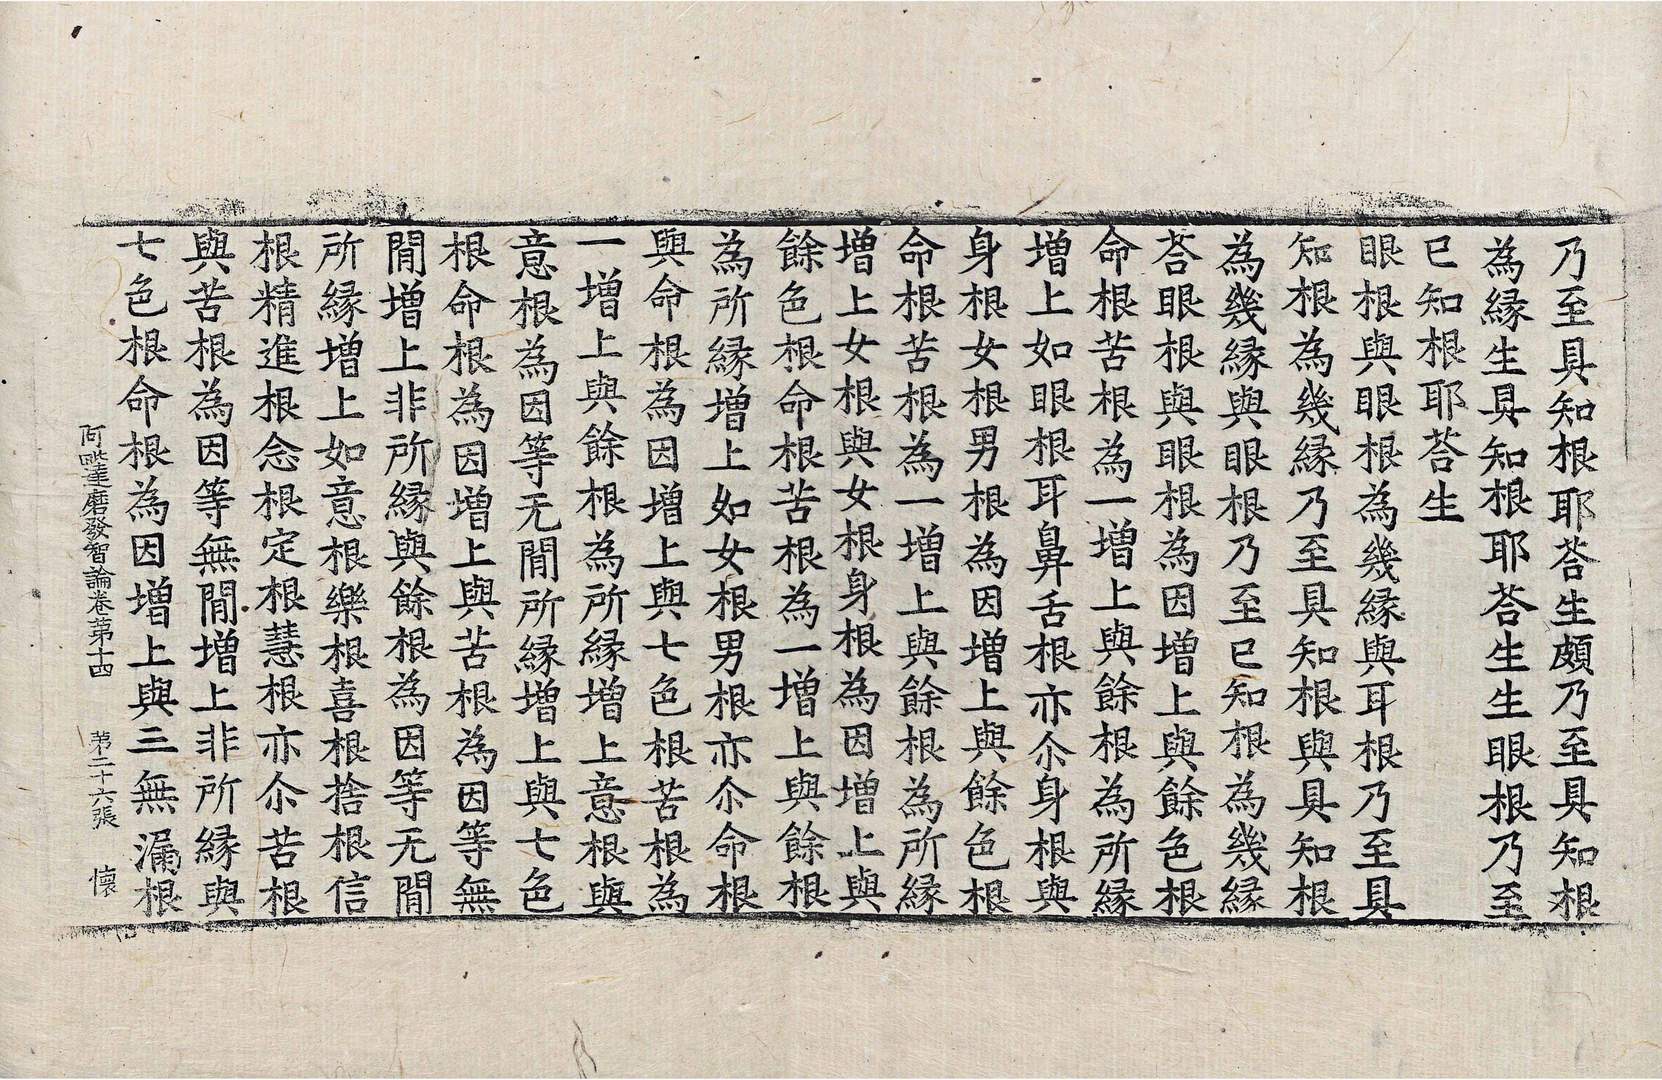 乃至具知根耶荅生頗乃至具知根
為縁生具知根耶荅生生眼根乃至
已知根耶荅生
眼根與眼根為幾縁與耳根乃至具
知根為幾縁乃至具知根與具知根
為幾縁與眼根乃至已知根為幾縁
荅眼根與眼根為因增上與餘色根
命根苦根為一增上與餘根為所縁
增上如眼根耳鼻舌根亦尒身根與
身根女根男根為因增上與餘色根
命根苦根為一增上與餘根為所縁
增上女根與女根身根為因增上與
餘色根命根苦根為一增上與餘根
為所縁增上如女根男根亦尒命根
與命根為因增上與七色根苦根為
一增上與餘根為所縁增上意根與
意根為因等无閒所縁增上與七色
根命根為因增上與苦根為因等無
閒增上非所縁與餘根為因等无閒
所縁增上如意根樂根喜根捨根信
根精進根念根定根慧根亦尒苦根
與苦根為因等無閒增上非所縁與
七色根命根為因增上與三無漏根
阿毗達磨發智論卷第十四 第二十六張 懷